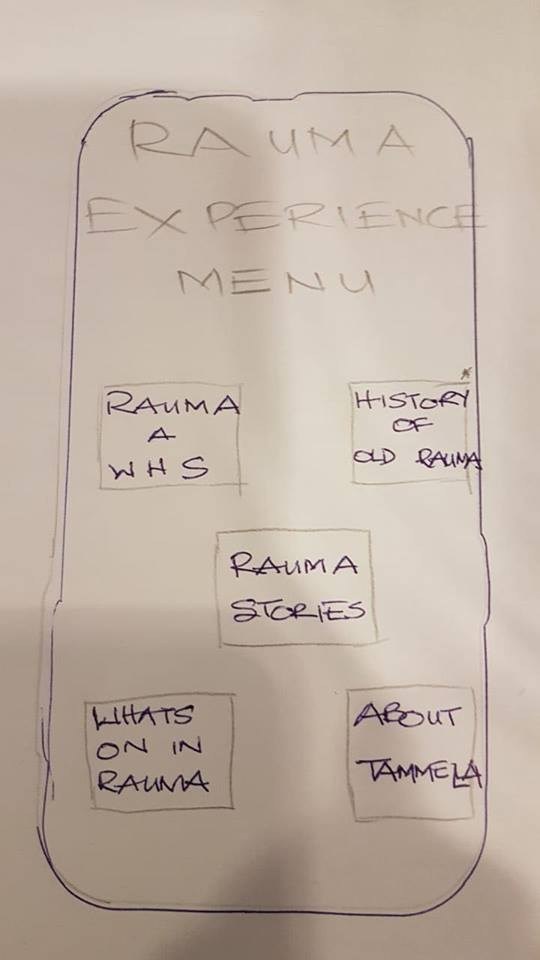 RAUMA
EXPERIENCE
MENU
RAUMA
A
WHS
HISTORY
OF
OLD RAUMA
RAUMA
STORIES
WHATS
ON IN
RAUMA
ABOUT
TAMMELA